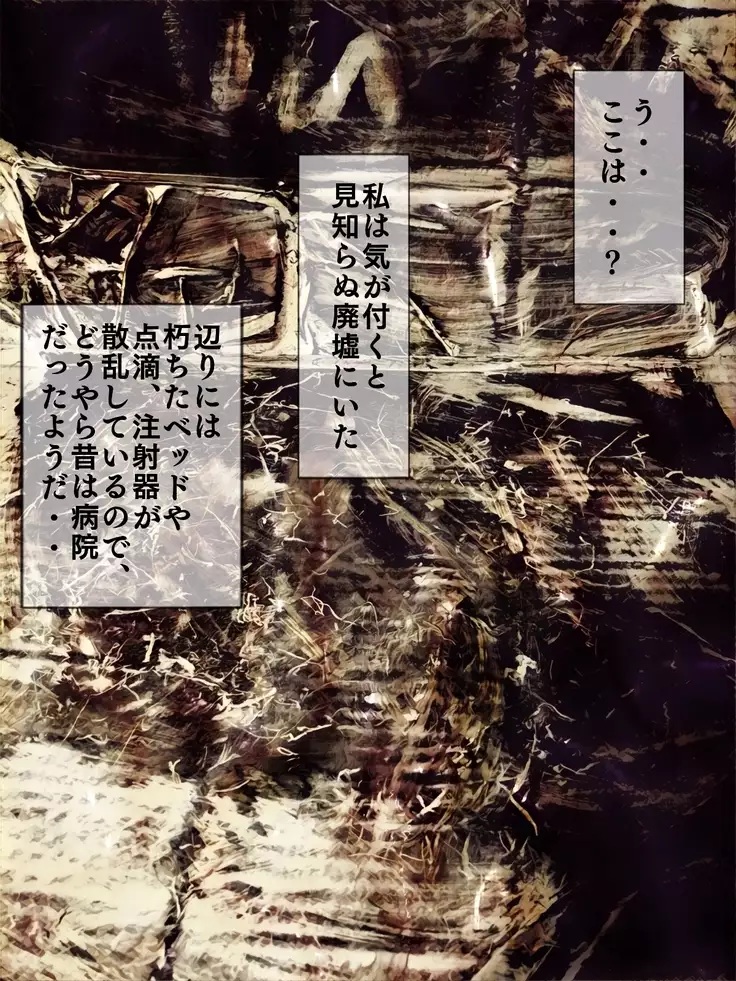 う・・
ここは・・？
私は気が付くと
見知らぬ廃墟にいた
辺りには
朽ちたベッドや
点滴、注射器が
散乱しているので、
どうやら昔は病院
だったようだ・・